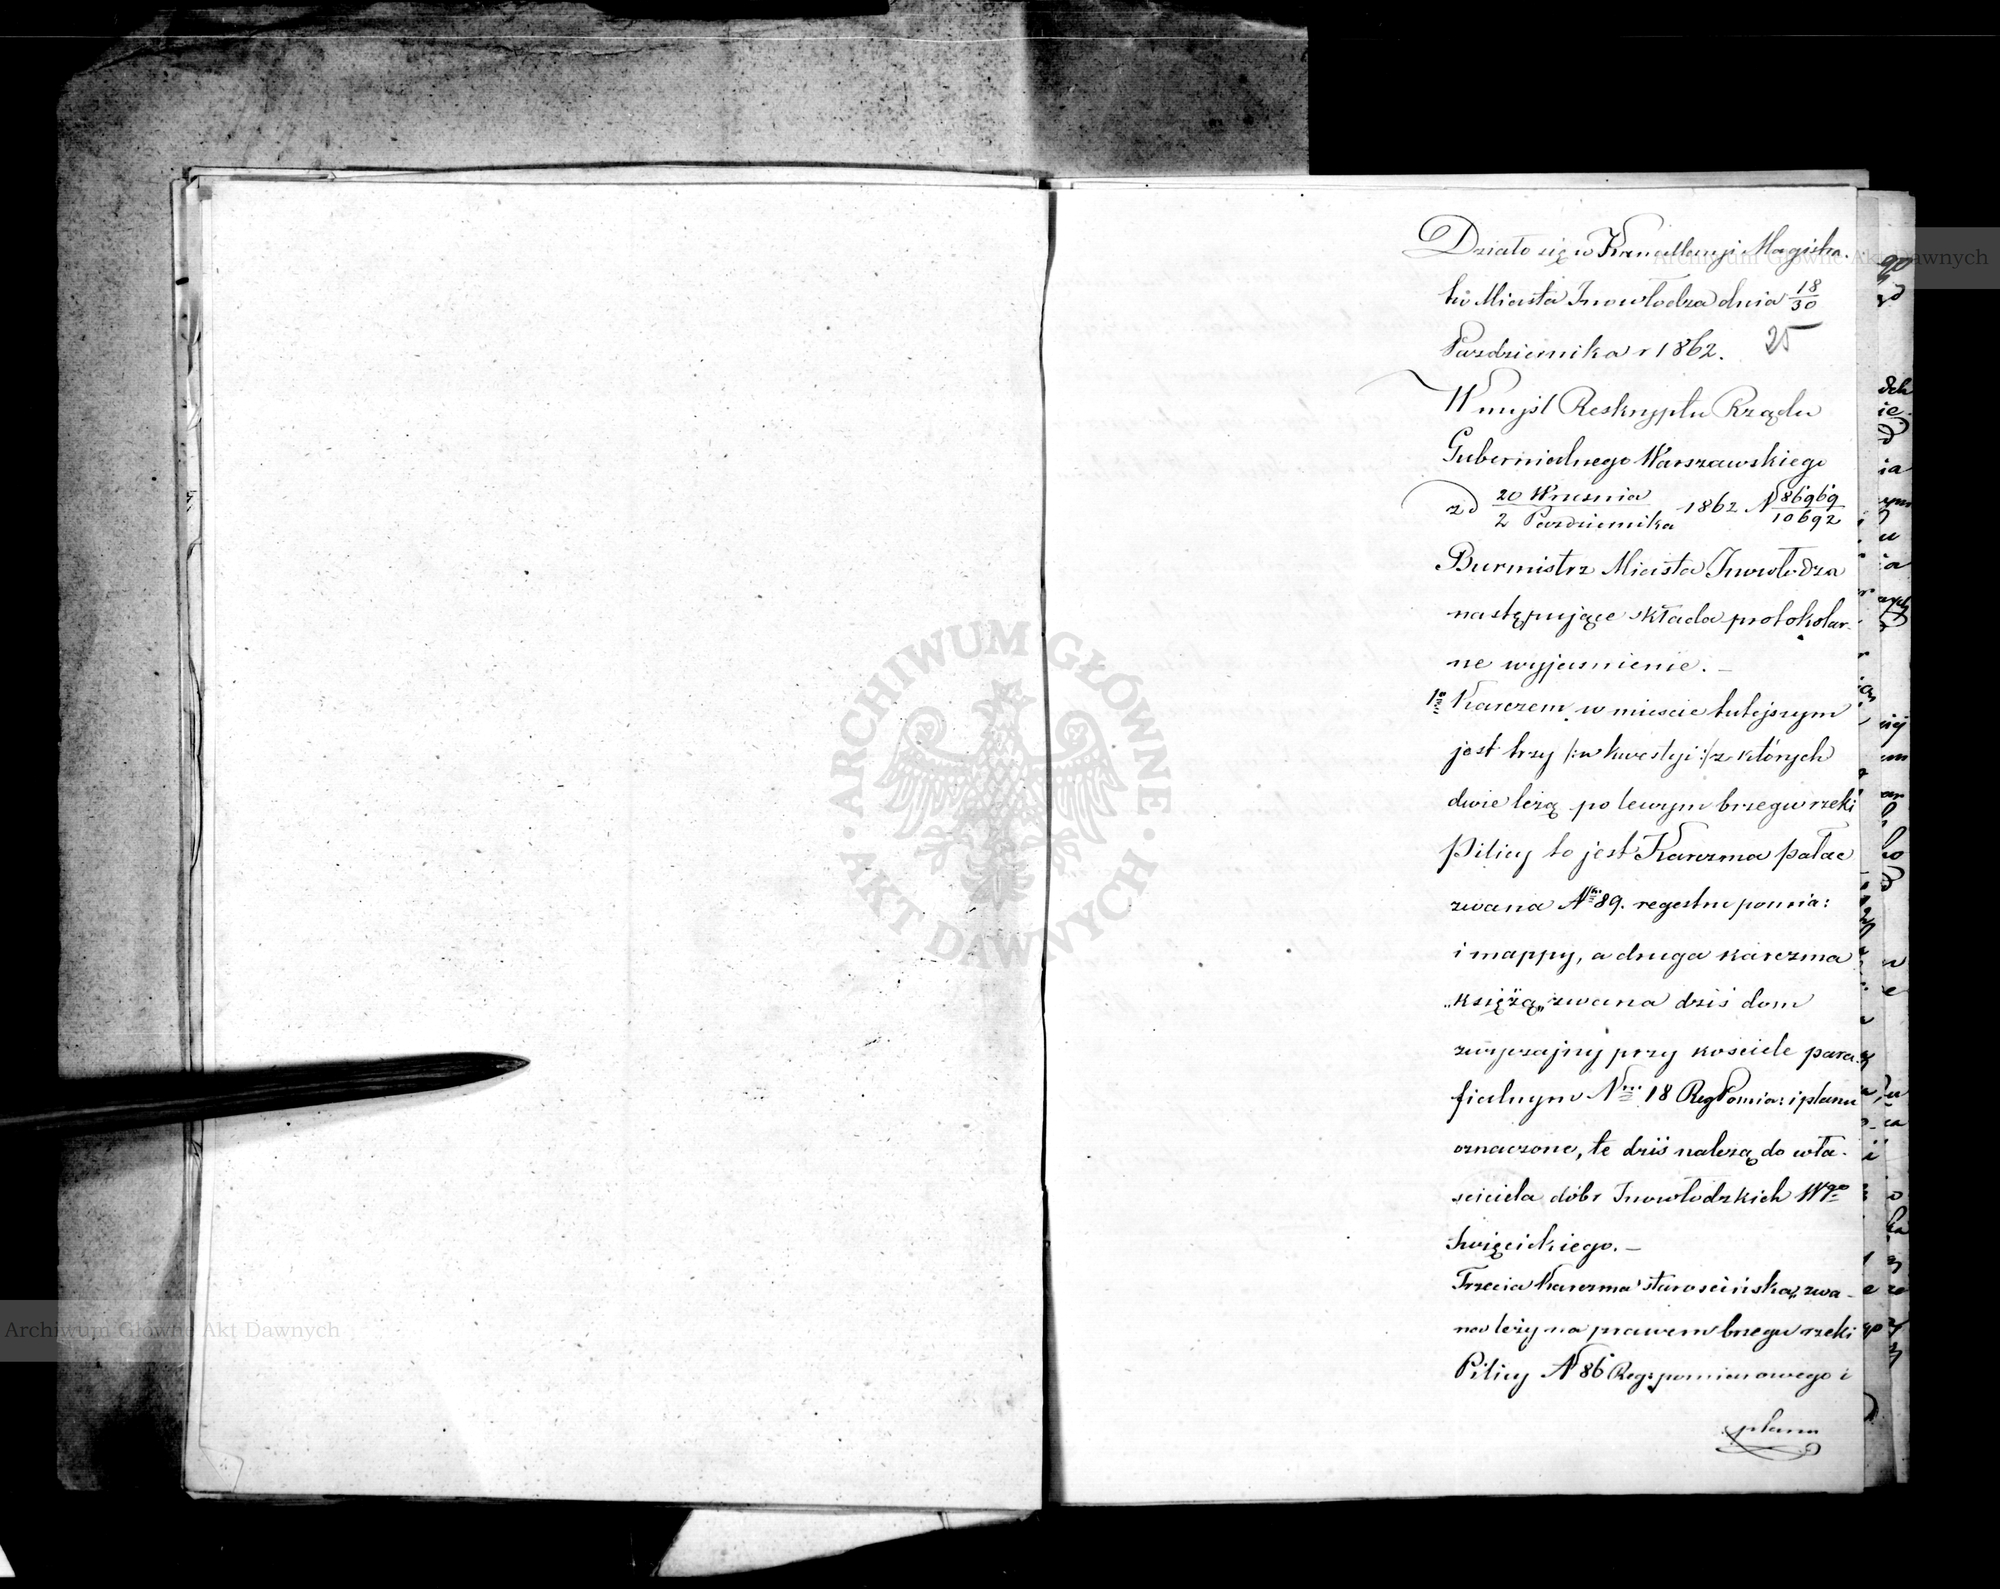 Działo się w Kancellaryi Magistra-
tu Miasta Inowłodza dnia 18/30
Pazdziernika r 1862. 25
W myśl Reskryptu Rządu
Gubernialnego Warszawskiego
z d 20 Wrzesnia/2 Pazdziernika 1862 N 86969/10692
Burmistrz Miasta Inowłodza
następujące składa protokolar-
ne wyjasnienie. –
1o Karczem w miescie tutejszym
jest trzy /:w kwestyi:/ z których
dwie leżą po lewym brzegu rzeki
Pilicy to jest Karczma pałac
zwana Nrm 89. regestru pomia:
i mappy, a druga karczma
„księżą„ zwana dziś dom
zwyczajny przy kosciele para-
fialnym Nrm 18 Reg Pomia: i planu
oznaczone, te dziś należą do wła-
sciciela dóbr Inowłodzkich Wgo
Swięcickiego. –
Trzecia Karczma „staroscińska„ zwa-
na leży na prawem brzegu rzeki
Pilicy N 86 Reg: pomiarowego i
planu
ARCHIWUM GŁÓWNE
AKT DAWNYCH
Archiwum Główne Akt Dawnych
Archiwum Główne Akt Dawnych